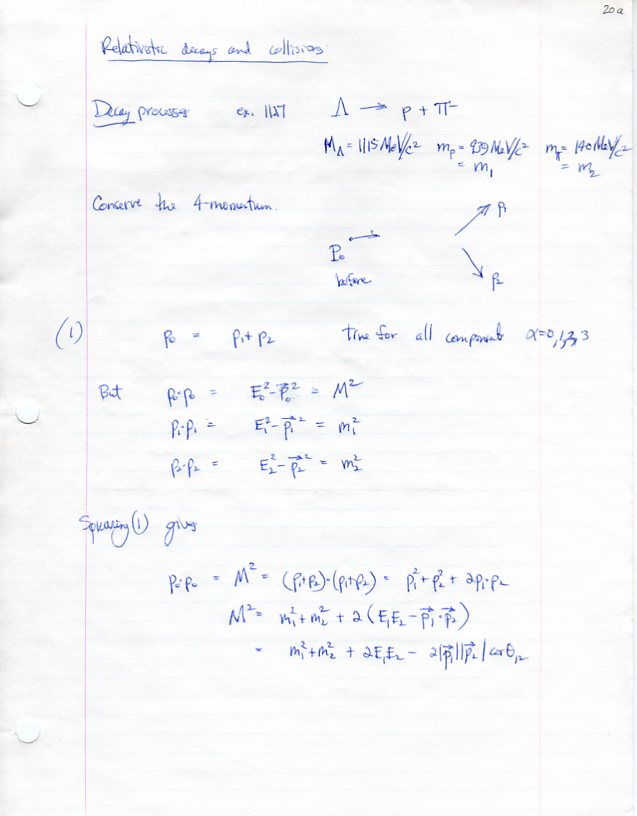 20a
Relativistic decays and collisions
Decay processes ex. 11.27 Λ → p + π⁻
M_Λ = 1115 MeV/c² m_p = 939 MeV/c² m_π = 140 MeV/c²
= m₁ = m₂
Conserve the 4-momentum.
p₁
P₀
before
p₂
(1) p₀ = p₁ + p₂ true for all components α=0,1,2,3
But p₀·p₀ = E₀² - p⃗₀² = M²
p₁·p₁ = E₁² - p⃗₁² = m₁²
p₂·p₂ = E₂² - p⃗₂² = m₂²
Squaring (1) gives
p₀·p₀ = M² = (p₁+p₂)·(p₁+p₂) = p₁² + p₂² + 2p₁·p₂
M² = m₁² + m₂² + 2(E₁E₂ - p⃗₁·p⃗₂)
= m₁² + m₂² + 2E₁E₂ - 2|p⃗₁||p⃗₂| cos θ₁₂